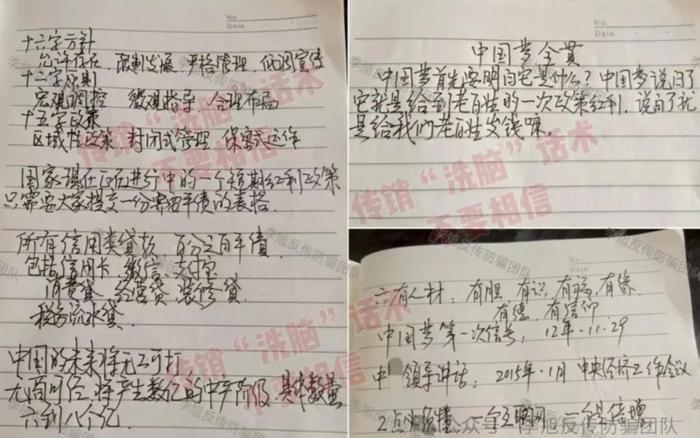 十六字方针
允许存在 限制发展 严格管理 低调宣传
十二字原则
宏观调控 微观指导 合理布局
十五字政策
区域性政策 封闭式管理 保密式运作
国家现在正在进行中的一个短期红利政策
只需要大家提交一份需要平债的表格
所有信用类贷款 百分之百平债
包括信用卡 微信 支付宝
消费贷 经营贷 装修贷
税务流水贷
中国的未来将无工可打
无商可经 将产生数亿的中产阶级 具体数量
六到八个亿
传销“洗脑”话术
不要相信
李旭反传防骗团队
No.
Date
中国梦全贯
中国梦首先要明白它是什么？中国梦说白了
它就是给到老百姓的一次政策红利，说白了就
是给我们老百姓发钱嘛。
传销“洗脑”话术
不要相信
李旭反传防骗团队
No.
Date
六有人材：有胆 有识 有福 有缘
有德 有信仰
中国梦第一次信号：12年.11.29
中 领导讲话：2015年.1月 中央经济工作会议
2点 一个互联网 一个是倍增
传销“洗脑”话术
不要相信
公众号·李旭反传防骗团队
No.
Date